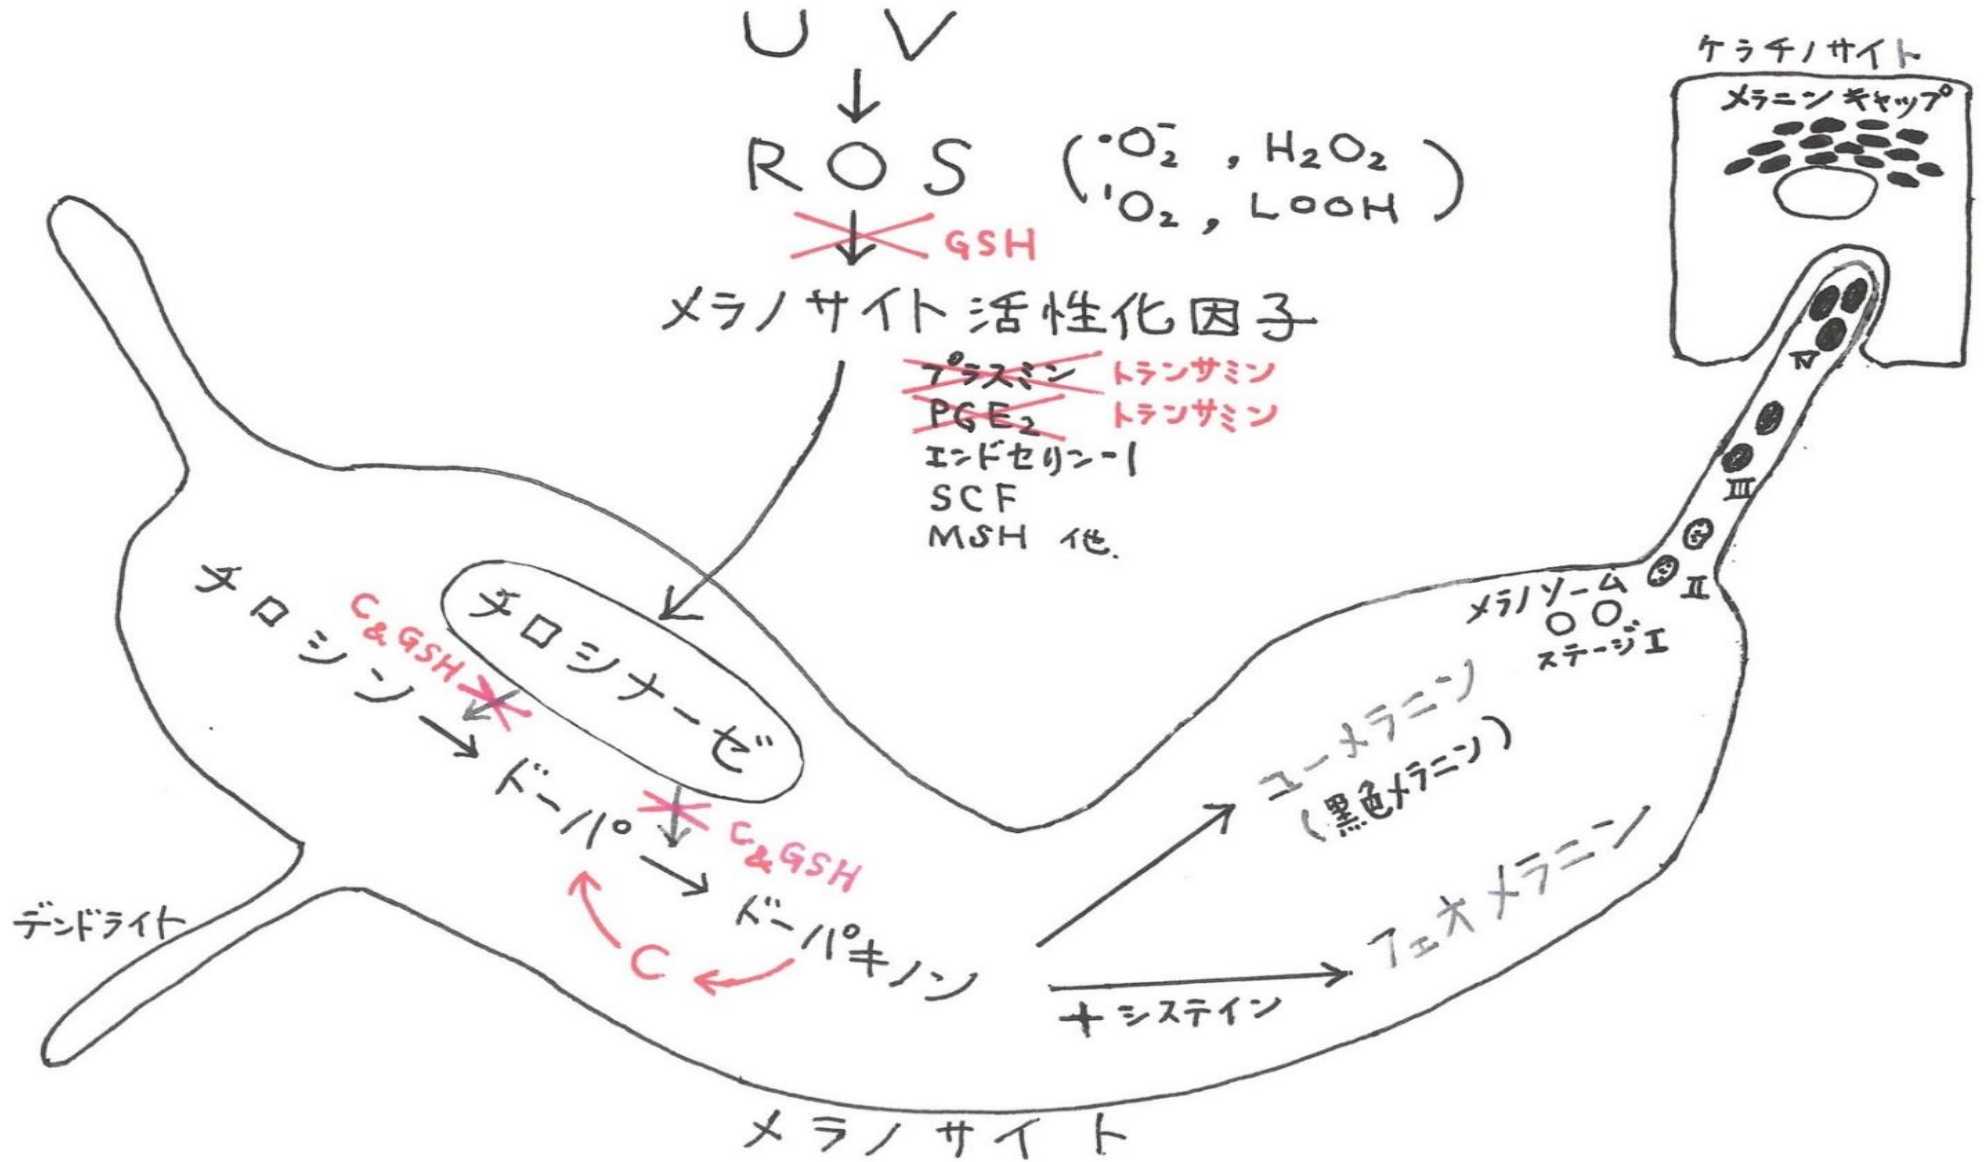 UV
ROS
(・O₂⁻, H₂O₂
¹O₂, LOOH)
GSH
メラノサイト活性化因子
プラスミン トランサミン
PGE₂ トランサミン
エンドセリン-1
SCF
MSH 他.
ケラチノサイト
メラニンキャップ
Ⅳ
Ⅲ
Ⅱ
メラノソーム
ステージⅠ
チロシン
C&GSH
チロシナーゼ
ドーパ
C&GSH
ドーパキノン
C
ユーメラニン
(黒色メラニン)
フェオメラニン
+システイン
デンドライト
メラノサイト